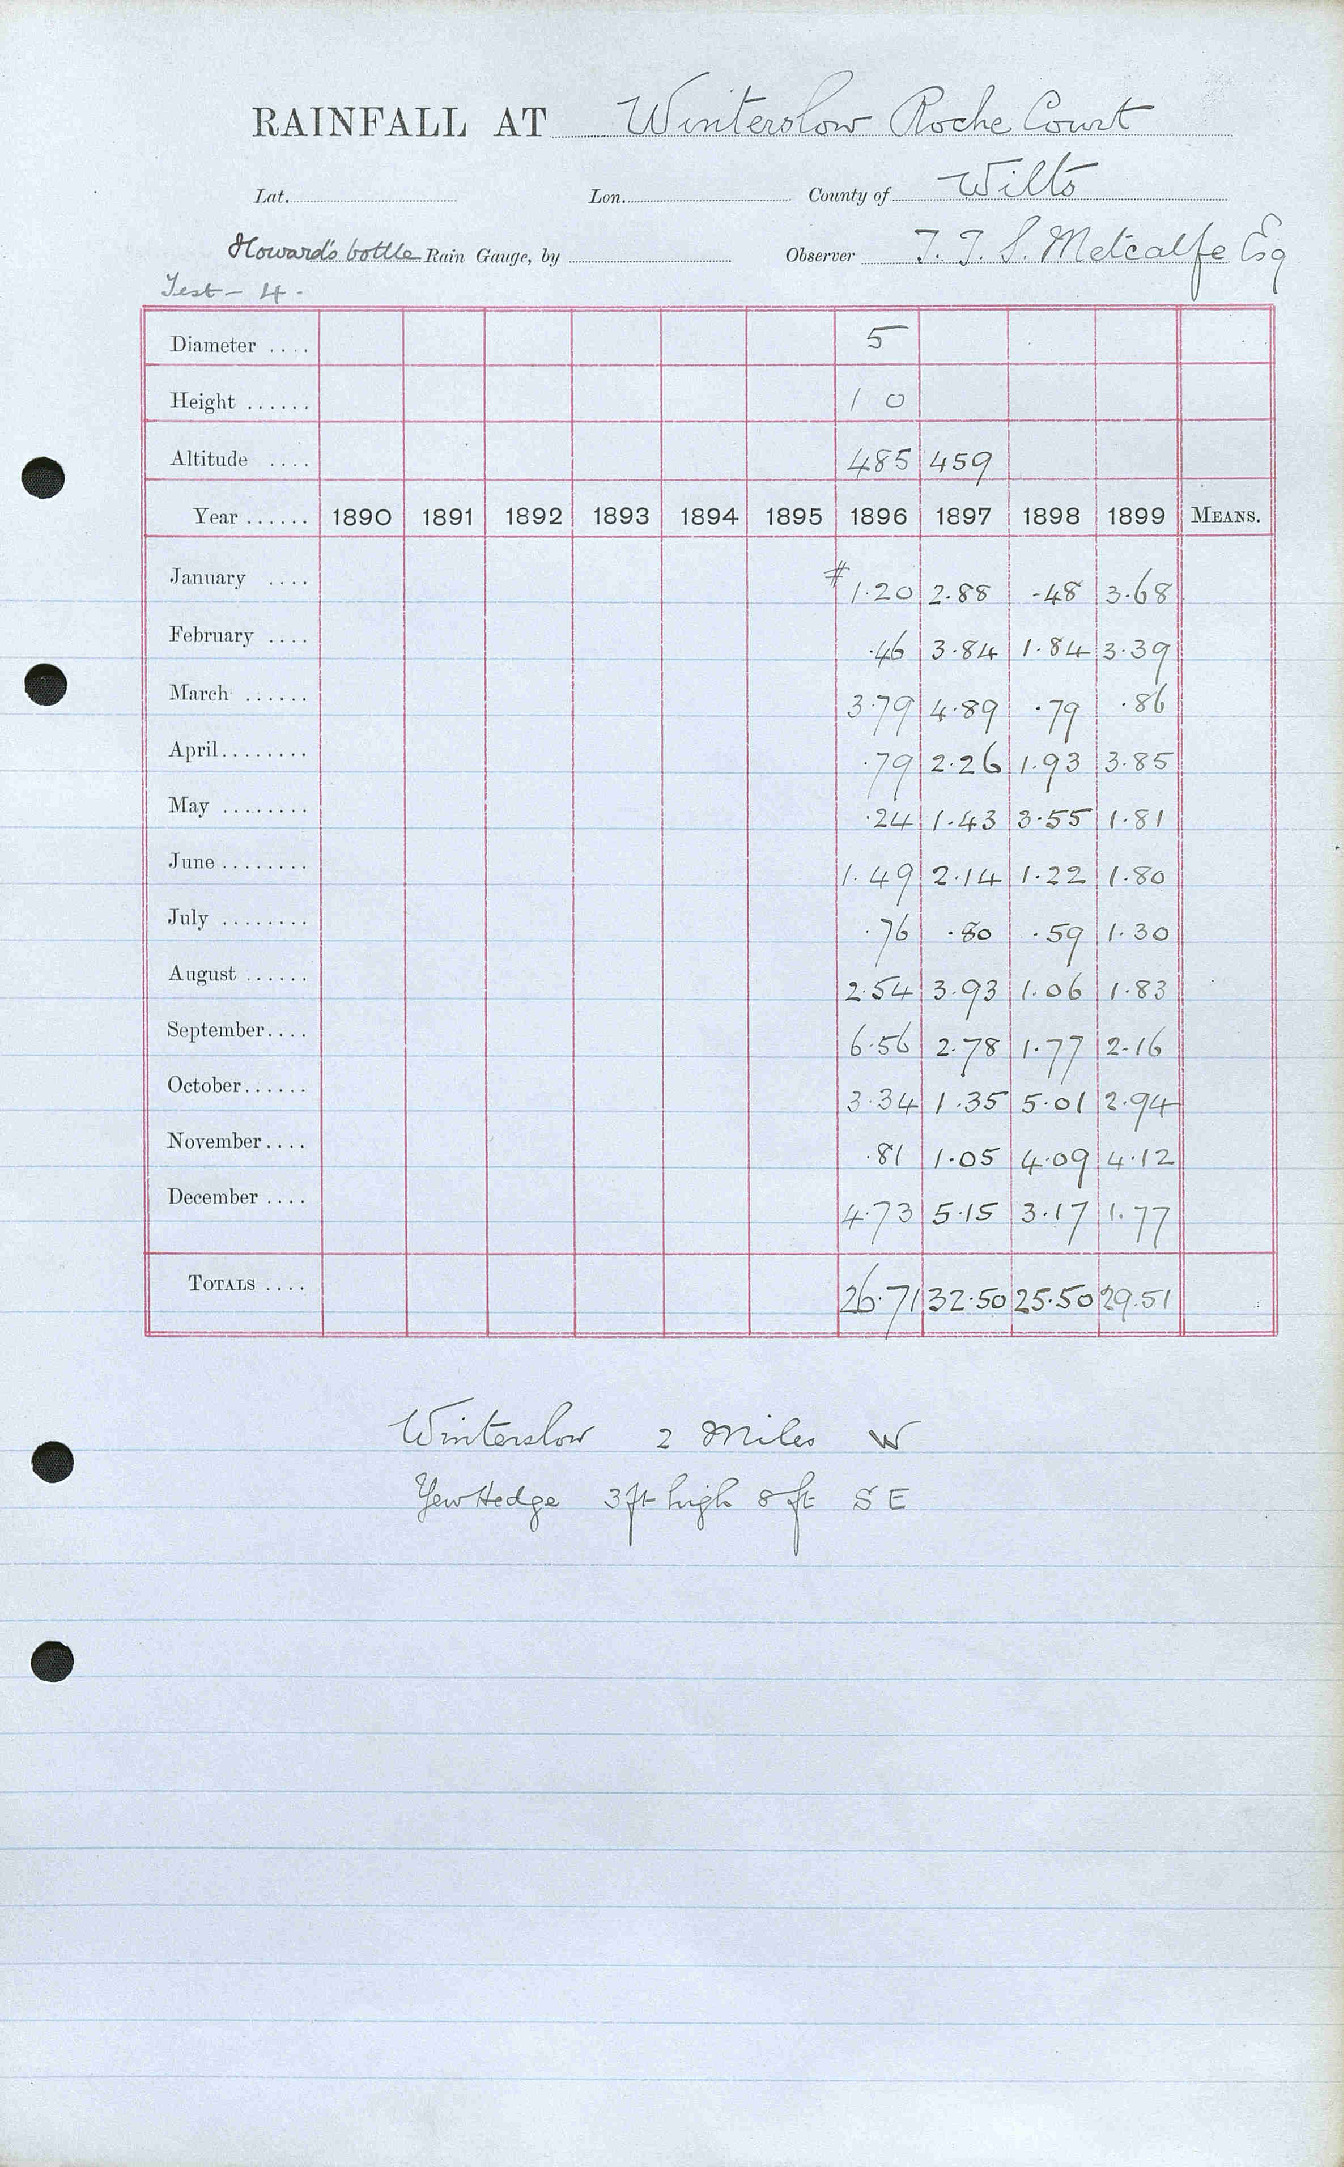 RAINFALL AT Winterslow Roche Court
Lat. Lon. County of Wilts
Howard's bottle Rain Gauge, by Observer T. T. S. Metcalfe Esq
Test - 4.
Diameter .... 5
Height ...... 1 0
Altitude .... 485 459
Year ...... 1890 1891 1892 1893 1894 1895 1896 1897 1898 1899 MEANS.
January .... # 1.20 2.88 .48 3.68
February .... .46 3.84 1.84 3.39
March ...... 3.79 4.89 .79 .86
April........ .79 2.26 1.93 3.85
May ........ .24 1.43 3.55 1.81
June ........ 1.49 2.14 1.22 1.80
July ........ .76 .80 .59 1.30
August ...... 2.54 3.93 1.06 1.83
September.... 6.56 2.78 1.77 2.16
October...... 3.34 1.35 5.01 2.94
November.... .81 1.05 4.09 4.12
December .... 4.73 5.15 3.17 1.77
TOTALS .... 26.71 32.50 25.50 29.51
Winterslow 2 Miles W
Yew Hedge 3 ft high 8 ft S E